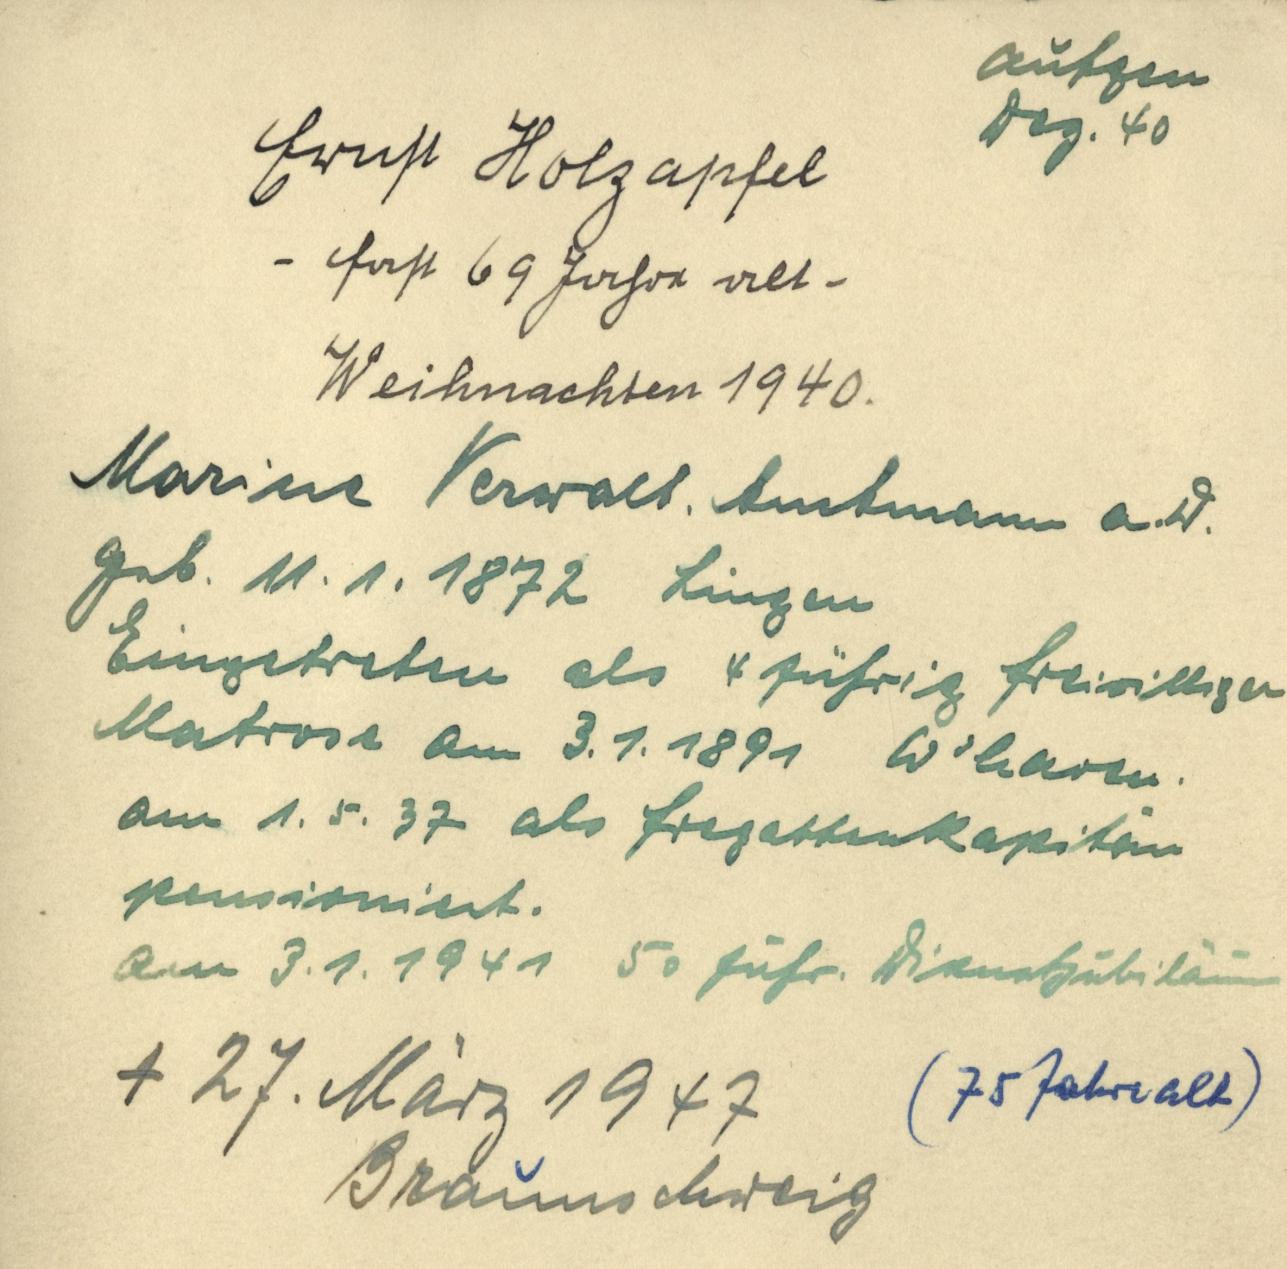 aufgen
Dez. 40
Ernst Holzapfel
- fast 69 Jahre alt -
Weihnachten 1940.
Marine Verwalt. Amtmann a.D.
geb. 11.1.1872 Lingen
Eingetreten als 4 jährig freiwilliger
Matrose am 3.1.1891 W'haven.
am 1.5.37 als Fregattenkapitän
pensioniert.
am 3.1.1941 50 jähr. Dienstjubiläum
+ 27. März 1947 (75 Jahre alt)
Braunschweig